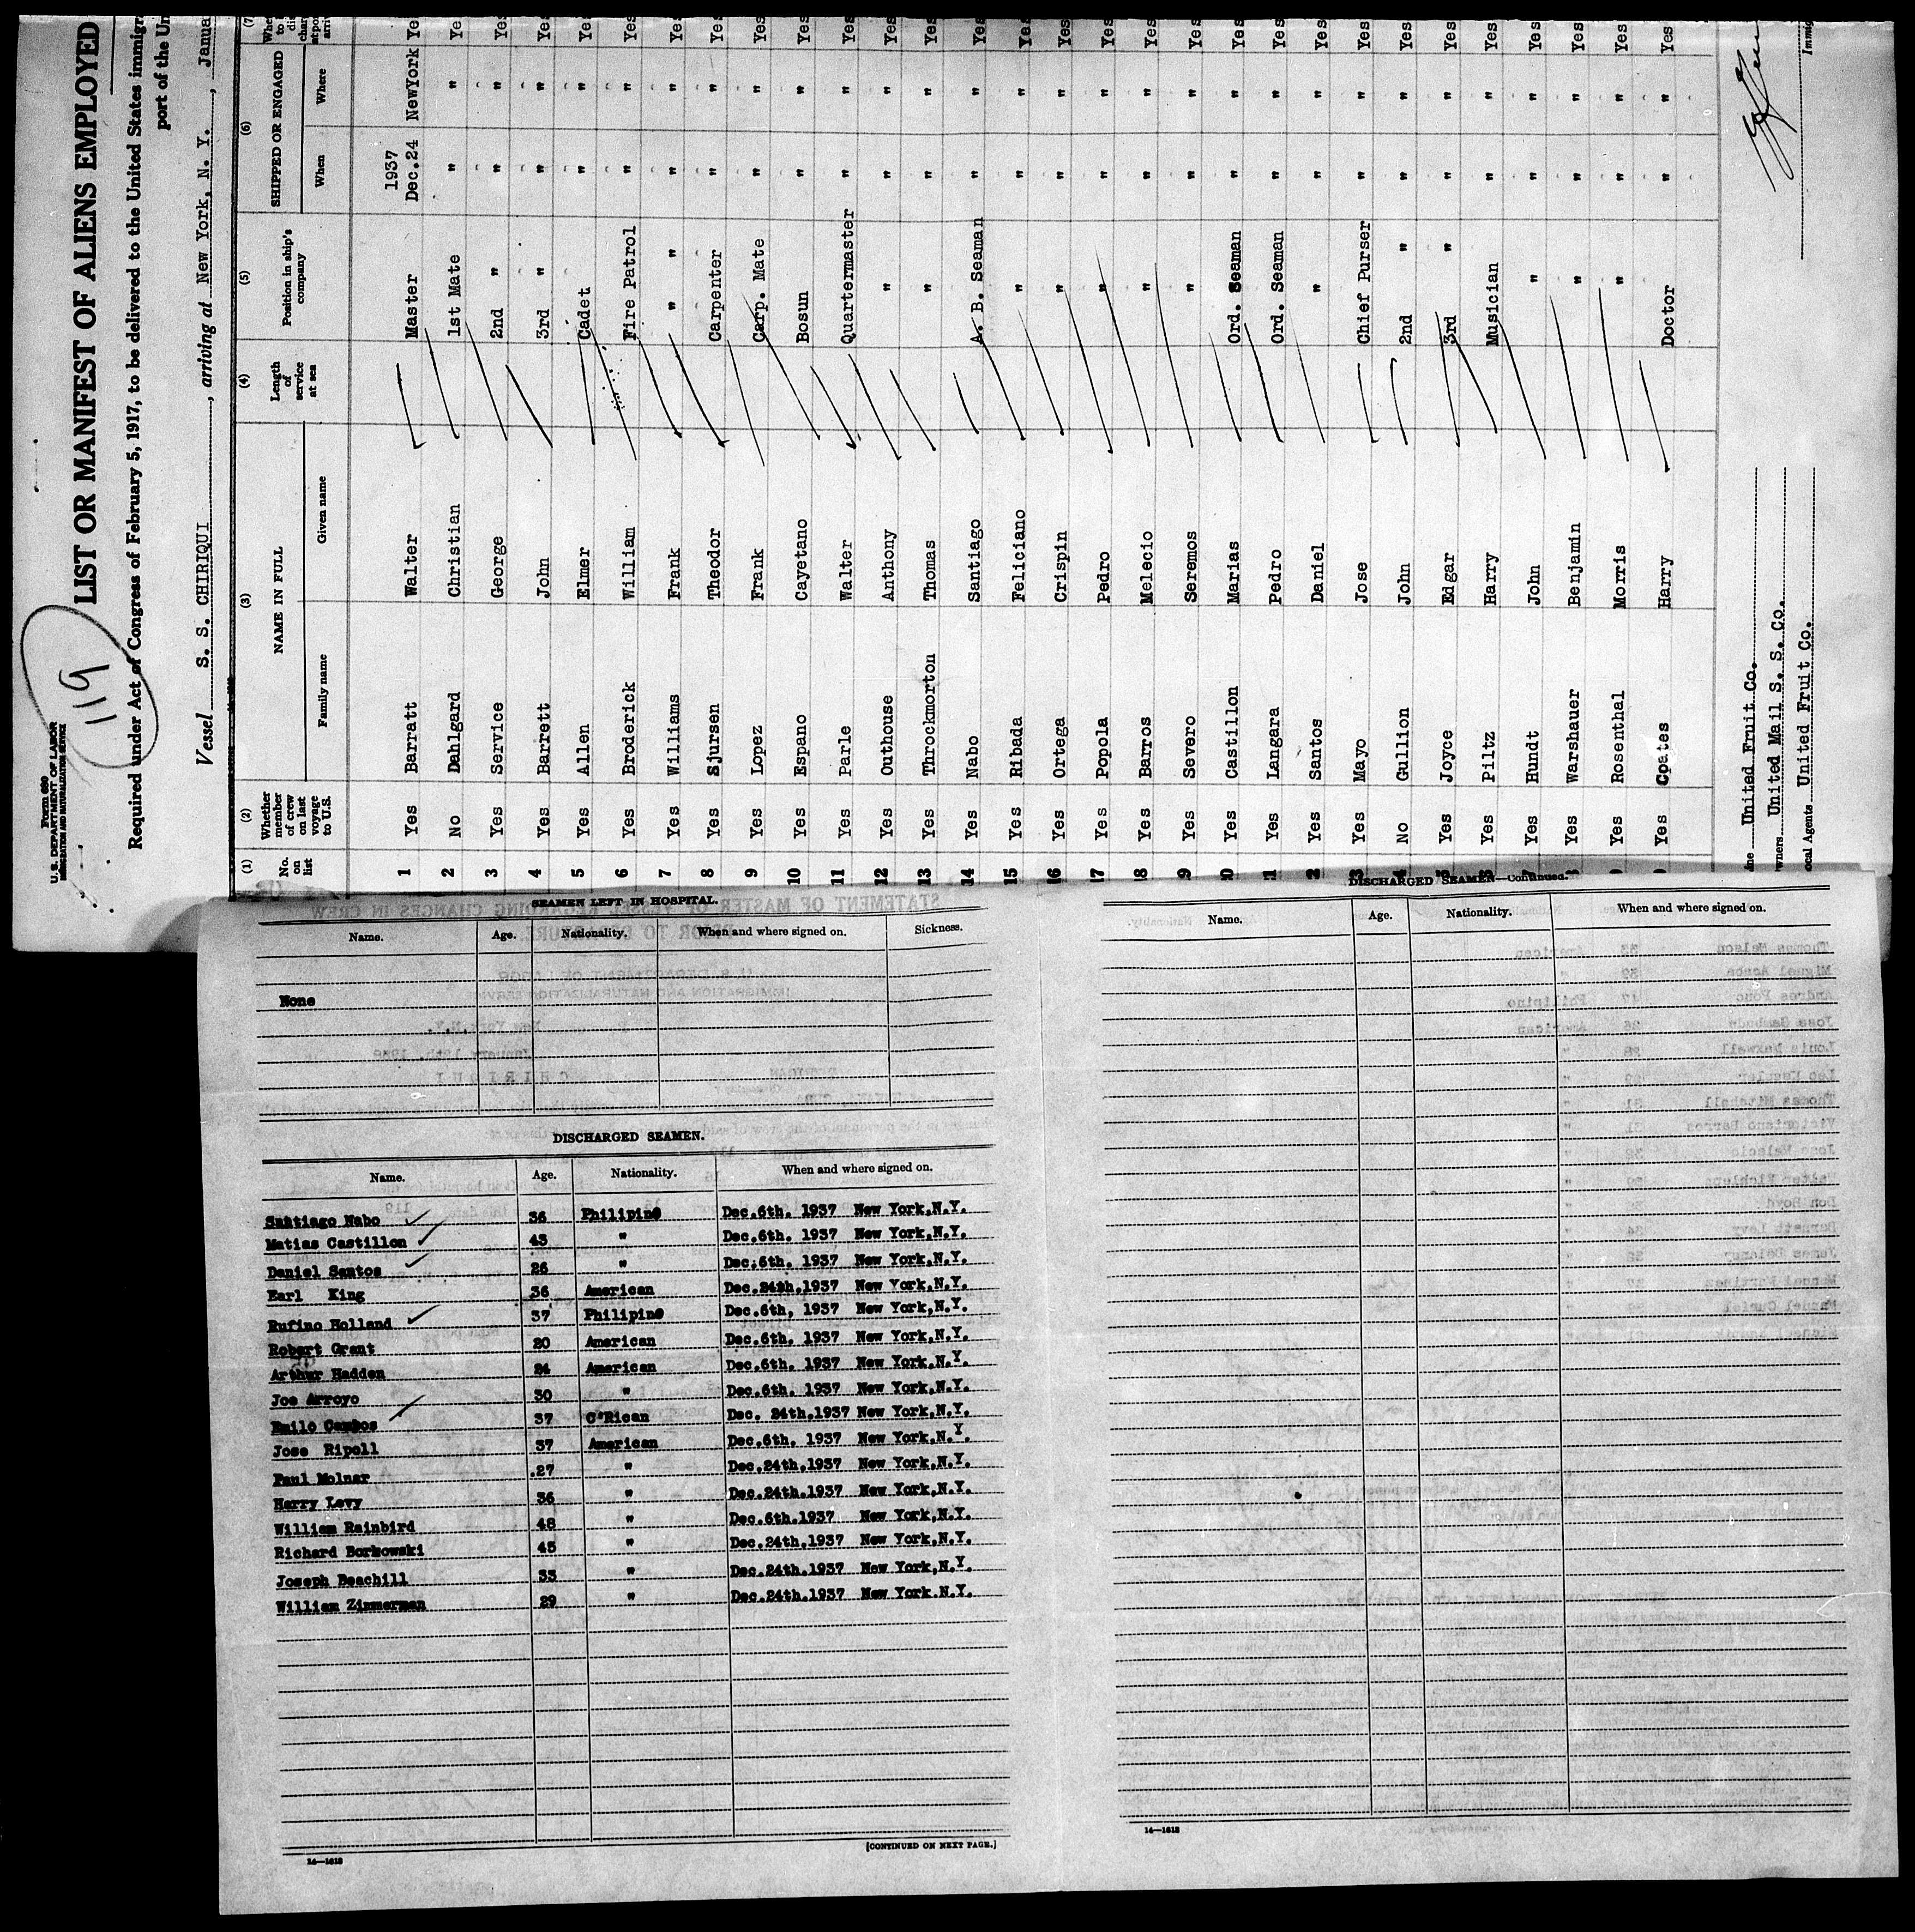 119
Form 680
U.S. DEPARTMENT OF LABOR
IMMIGRATION AND NATURALIZATION SERVICE
LIST OR MANIFEST OF ALIENS EMPLOYED
Required under Act of Congress of February 5, 1917, to be delivered to the United States immigr
port of the Un
Vessel S. S. CHIRIQUI, arriving at New York, N. Y., Janua
(1) (2) (3) (4) (5) (6) (7)
No. on list Whether member of crew on last voyage to U.S. NAME IN FULL Length of service at sea Position in ship's company SHIPPED OR ENGAGED
Family name Given name When Where
1937
1 Yes Barratt Walter Master Dec.24 NewYork Ye
2 No Dahlgard Christian 1st Mate " " Ye
3 Yes Service George 2nd " " " Yes
4 Yes Barrett John 3rd " " " Yes
5 Yes Allen Elmer Cadet " " Yes
6 Yes Broderick William Fire Patrol " " Yes
7 Yes Williams Frank " " " " Yes
8 Yes Sjursen Theodor Carpenter " " Yes
9 Yes Lopez Frank Carp. Mate " " Yes
10 Yes Espano Cayetano Bosun " " Yes
11 Yes Parle Walter Quartermaster " " Yes
12 Yes Outhouse Anthony " " " Yes
13 Yes Throckmorton Thomas " " " Yes
14 Yes Nabo Santiago A. B. Seaman " " Yes
15 Yes Ribada Feliciano " " " Yes
16 Yes Ortega Crispin " " " Yes
17 Yes Popola Pedro " " " Yes
8 Yes Barros Melecio " " " Yes
9 Yes Severo Seremos " " " Yes
0 Yes Castillon Marias Ord. Seaman " " Yes
1 Yes Langara Pedro Ord. Seaman " " Yes
2 Yes Santos Daniel " " " Yes
3 Yes Mayo Jose Chief Purser " " Yes
4 No Gullion John 2nd " " " Yes
Yes Joyce Edgar 3rd " " " Yes
Yes Piltz Harry Musician " " Yes
Yes Hundt John " " " Yes
Yes Warshauer Benjamin " " " Yes
Yes Rosenthal Morris " " " Yes
Yes Coates Harry Doctor " " Yes
ne United Fruit Co.
wners United Mail S. S. Co.
ocal Agents United Fruit Co.
Immig
SEAMEN LEFT IN HOSPITAL.
Name. Age. Nationality. When and where signed on. Sickness.
None
DISCHARGED SEAMEN.
Name. Age. Nationality. When and where signed on.
Santiago Nabo 36 Philipino Dec.6th. 1937 New York,N.Y.
Matias Castillon 43 " Dec.6th. 1937 New York,N.Y.
Daniel Santos 26 " Dec.6th. 1937 New York,N.Y.
Earl King 36 American Dec.24th,1937 New York,N.Y.
Rufino Holland 37 Philipino Dec.6th, 1937 New York,N.Y.
Robert Grant 20 American Dec.6th. 1937 New York,N.Y.
Arthur Hadden 24 American Dec.6th. 1937 New York,N.Y.
Joe Arroyo 30 " Dec.6th. 1937 New York,N.Y.
Emilo Campos 37 C'Rican Dec. 24th.1937 New York,N.Y.
Jose Ripoll 37 American Dec.6th. 1937 New York,N.Y.
Paul Molnar 27 " Dec.24th.1937 New York,N.Y.
Harry Levy 36 " Dec.24th.1937 New York,N.Y.
William Rainbird 48 " Dec.6th.1937 New York,N.Y.
Richard Borkowski 45 " Dec.24th,1937 New York,N.Y.
Joseph Beachill 33 " Dec.24th.1937 New York,N.Y.
William Zimmerman 29 " Dec.24th.1937 New York.N.Y.
[CONTINUED ON NEXT PAGE.]
14—1618
DISCHARGED SEAMEN—Continued.
Name. Age. Nationality. When and where signed on.
14—1618